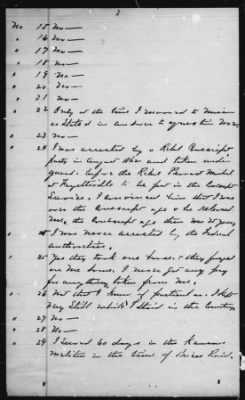 2
No 15 No —
" 16 No —
" 17 No —
" 18 No —
" 19 No —
" 20 No —
" 21 No —
" 22 Only at the time I moved to
as stated in answer to question No 2
" 23 No —
" 24 I was arrested by a Rebel Conscript
party in August 1862 and taken under
guard before the Rebel Provost Marshal
at Fayetteville to be put in the Conscript
Service. I convinced him that I was
over the Conscript age & he released
me, the Conscript age then was 35 years
I was never arrested by the Federal
authorities.
" 25 Yes they took one horse & they
one horse. I never got any pay
for anything taken from me.
" 26 Not that I know of
very still while I staid in the Country
" 27 No —
" 28 No —
" 29 I served 60 days in the Kansas
Militia in the time of Prices Raid.